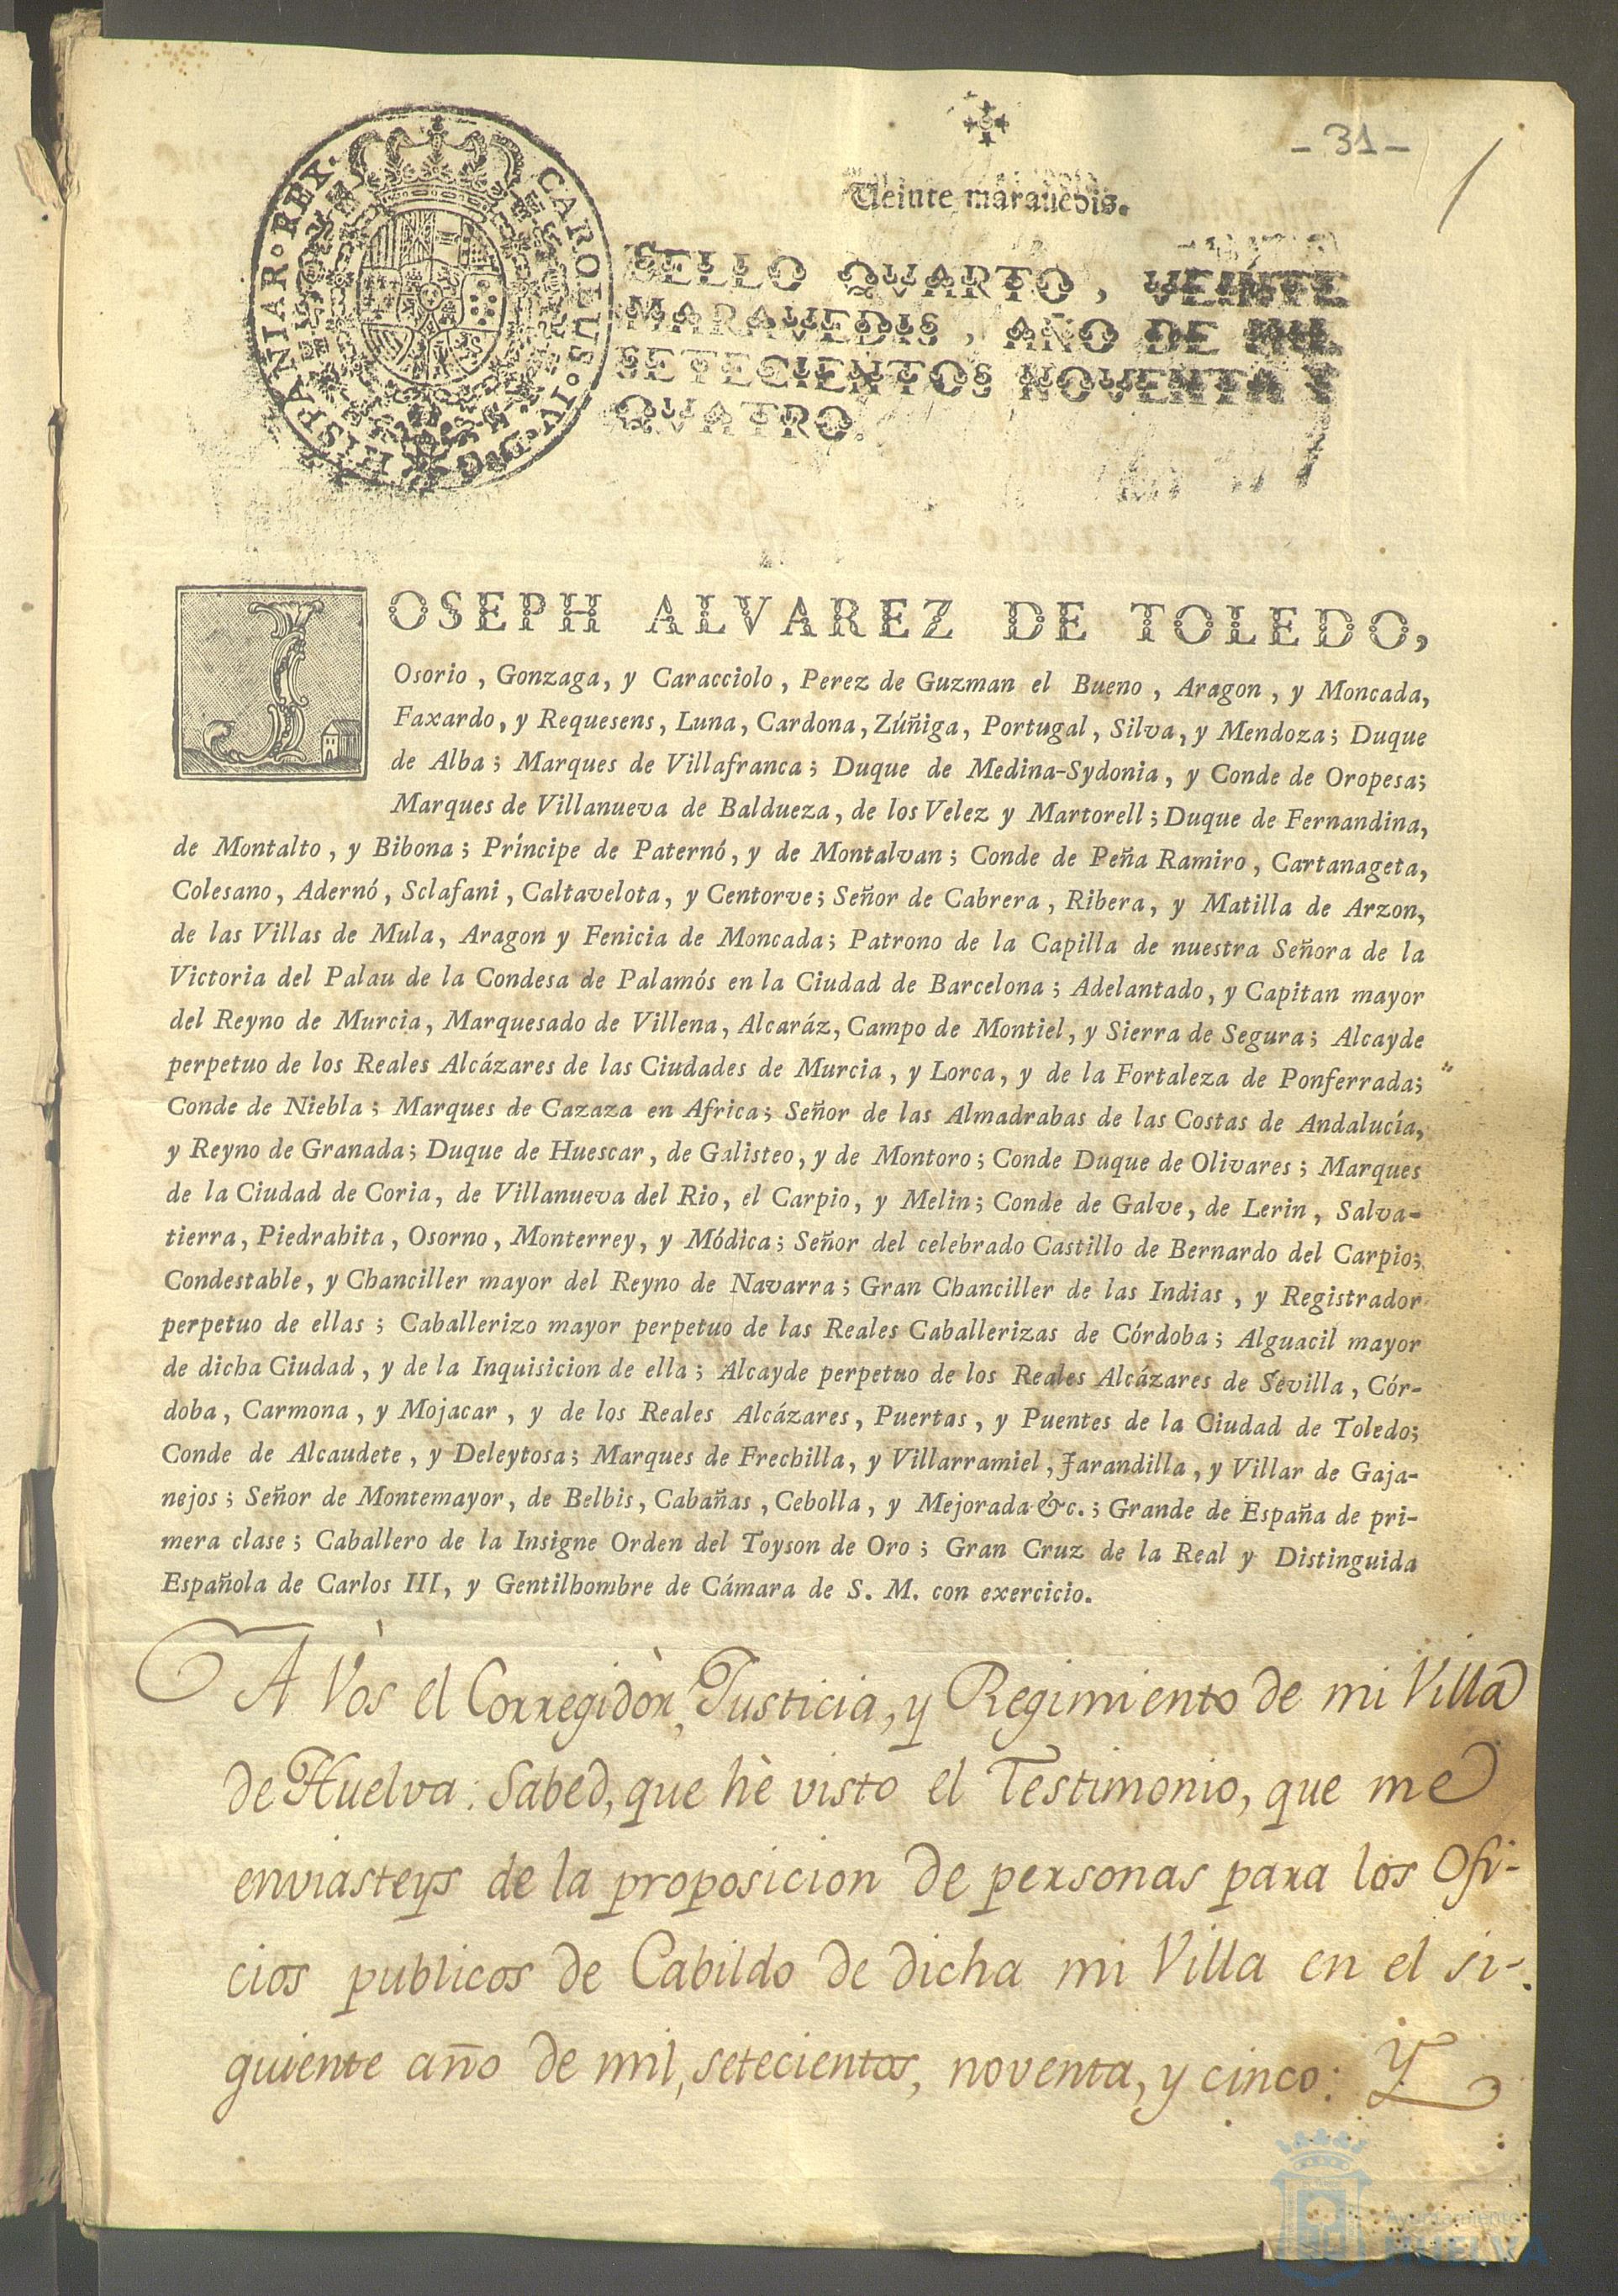 - 31 -
Veinte maravedis.
CAROLUS · IV · D · G · HISPANIAR · REX ·
SELLO QVARTO, VEINTE
MARAVEDIS, AÑO DE MIL
SETECIENTOS NOVENTA Y
QVATRO.
JOSEPH ALVAREZ DE TOLEDO,
Osorio, Gonzaga, y Caracciolo, Perez de Guzman el Bueno, Aragon, y Moncada,
Faxardo, y Requesens, Luna, Cardona, Zúñiga, Portugal, Silva, y Mendoza; Duque
de Alba; Marques de Villafranca; Duque de Medina-Sydonia, y Conde de Oropesa;
Marques de Villanueva de Baldueza, de los Velez y Martorell; Duque de Fernandina,
de Montalto, y Bibona; Príncipe de Paternó, y de Montalvan; Conde de Peña Ramiro, Cartanageta,
Colesano, Adernó, Sclafani, Caltavelota, y Centorve; Señor de Cabrera, Ribera, y Matilla de Arzon,
de las Villas de Mula, Aragon y Fenicia de Moncada; Patrono de la Capilla de nuestra Señora de la
Victoria del Palau de la Condesa de Palamós en la Ciudad de Barcelona; Adelantado, y Capitan mayor
del Reyno de Murcia, Marquesado de Villena, Alcaráz, Campo de Montiel, y Sierra de Segura; Alcayde
perpetuo de los Reales Alcázares de las Ciudades de Murcia, y Lorca, y de la Fortaleza de Ponferrada;
Conde de Niebla; Marques de Cazaza en Africa; Señor de las Almadrabas de las Costas de Andalucía,
y Reyno de Granada; Duque de Huescar, de Galisteo, y de Montoro; Conde Duque de Olivares; Marques
de la Ciudad de Coria, de Villanueva del Rio, el Carpio, y Melin; Conde de Galve, de Lerin, Salva-
tierra, Piedrahita, Osorno, Monterrey, y Módica; Señor del celebrado Castillo de Bernardo del Carpio;
Condestable, y Chanciller mayor del Reyno de Navarra; Gran Chanciller de las Indias, y Registrador
perpetuo de ellas; Caballerizo mayor perpetuo de las Reales Caballerizas de Córdoba; Alguacil mayor
de dicha Ciudad, y de la Inquisicion de ella; Alcayde perpetuo de los Reales Alcázares de Sevilla, Cór-
doba, Carmona, y Mojacar, y de los Reales Alcázares, Puertas, y Puentes de la Ciudad de Toledo;
Conde de Alcaudete, y Deleytosa; Marques de Frechilla, y Villarramiel, Jarandilla, y Villar de Gaja-
nejos; Señor de Montemayor, de Belbis, Cabañas, Cebolla, y Mejorada &c.; Grande de España de pri-
mera clase; Caballero de la Insigne Orden del Toyson de Oro; Gran Cruz de la Real y Distinguida
Española de Carlos III, y Gentilhombre de Cámara de S. M. con exercicio.
A Vòs el Corregidòr, Justicia, y Regimiento de mi Villa
de Huelva: Sabed, que hè visto el Testimonio, que me
enviasteys de la proposicion de personas para los Ofi-
cios publicos de Cabildo de dicha mi Villa en el si-
guiente año de mil, setecientos, noventa, y cinco: Y
Ayuntamiento de
HUELVA